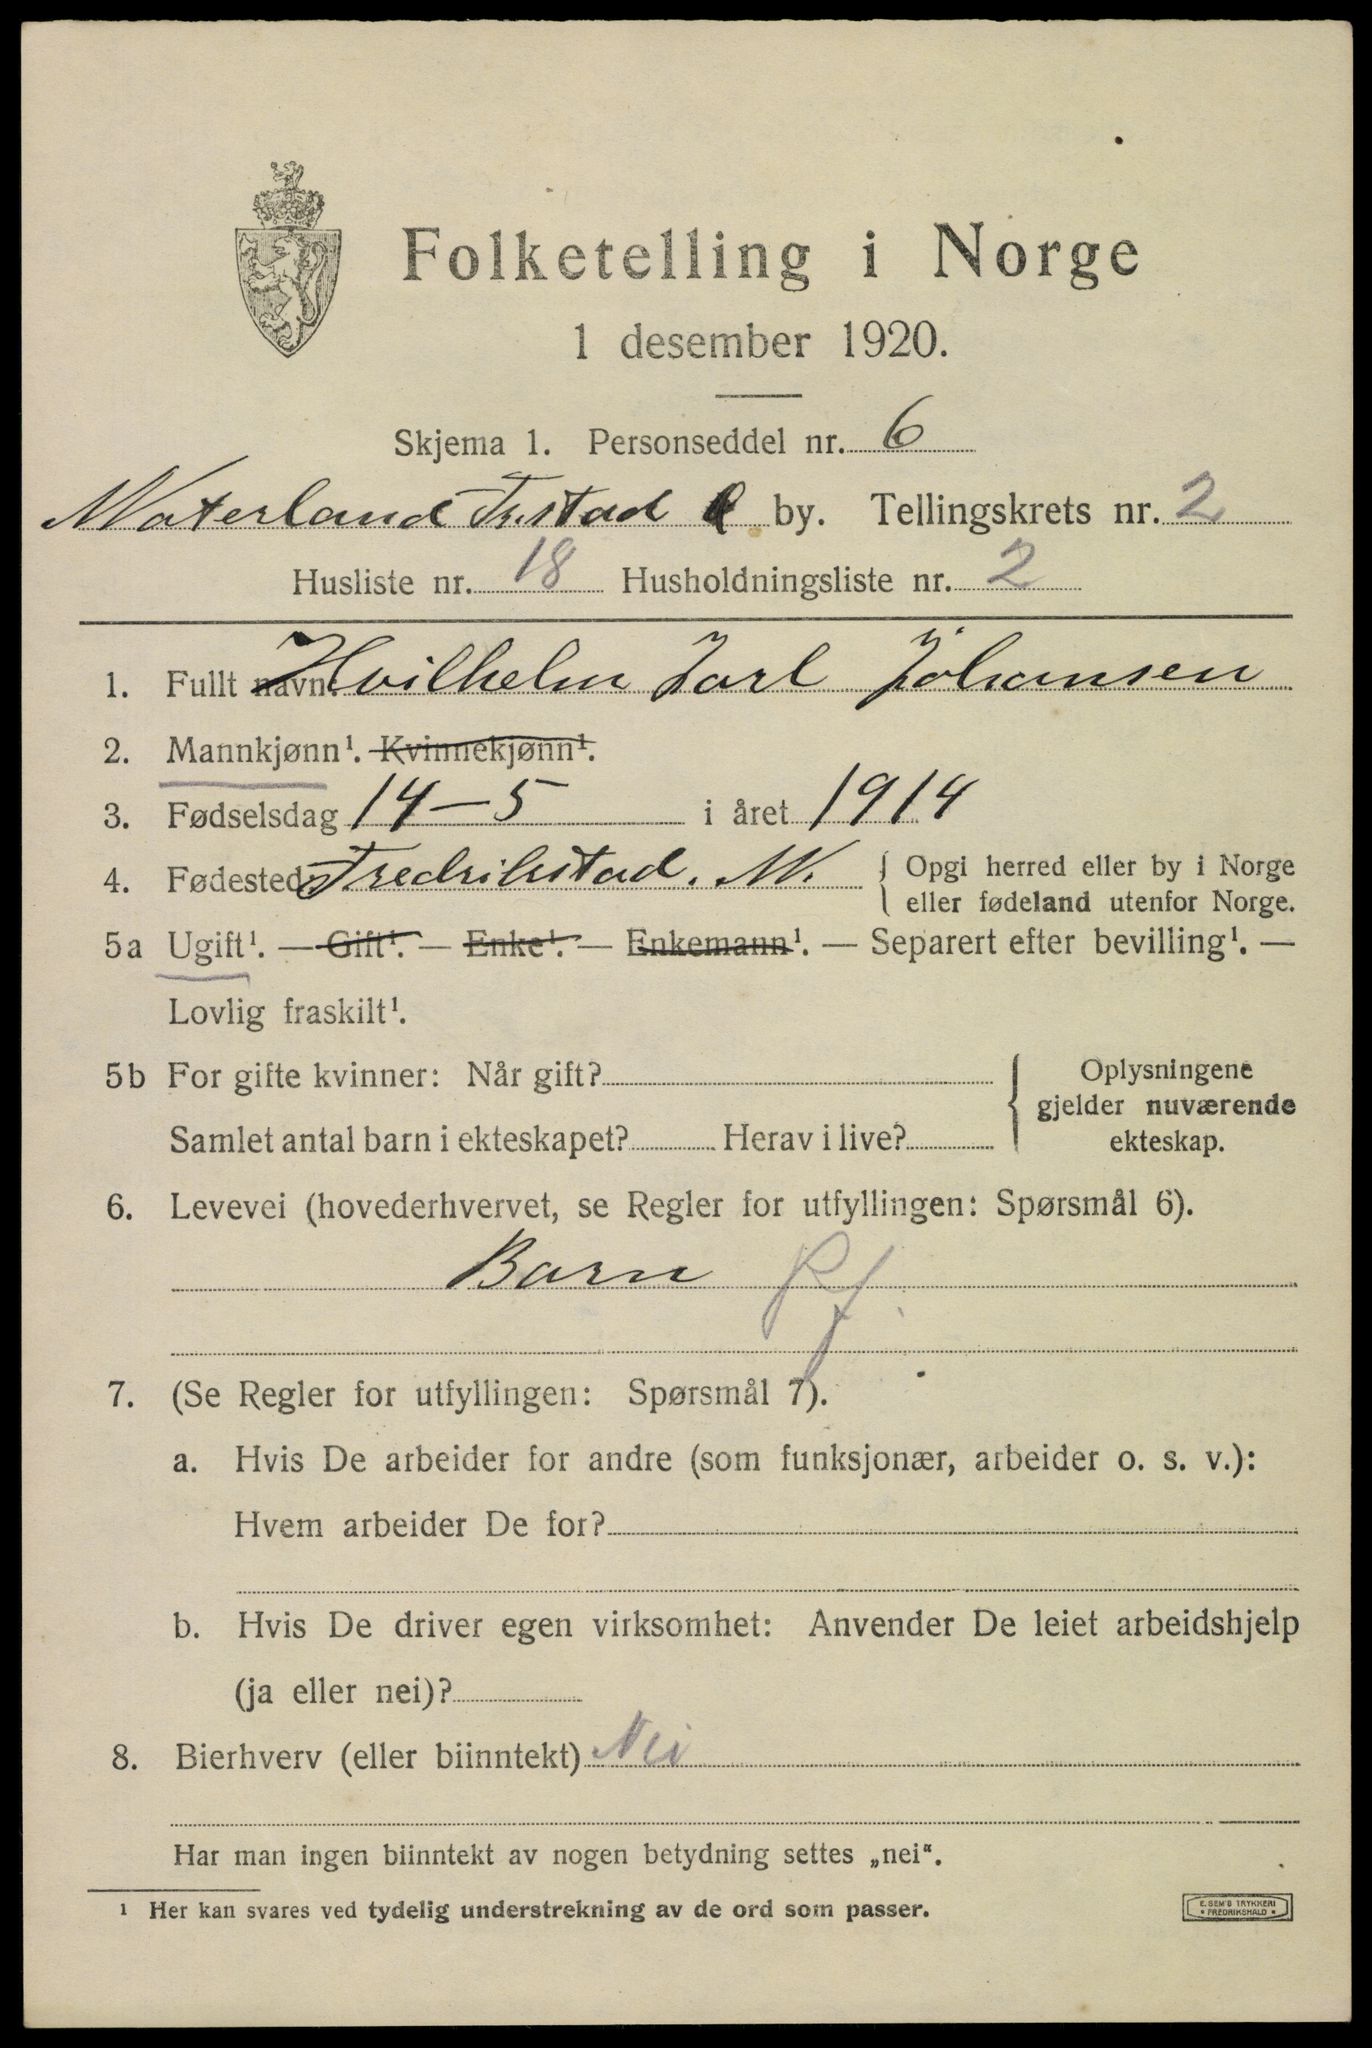 Folketelling i Norge
1 desember 1920.
Skjema 1. Personseddel nr. 6
Waterland Fr.stad by. Tellingskrets nr. 2
Husliste nr. 18 Husholdningsliste nr. 2
1. Fullt navn Hvilhelm Jarl Johansen
2. Mannkjønn¹. Kvinnekjønn¹.
3. Fødselsdag 14–5 i året 1914
4. Fødested Fredrikstad. { Opgi herred eller by i Norge
eller fødeland utenfor Norge.
5a Ugift¹. — Gift¹. — Enke¹. — Enkemann¹. — Separert efter bevilling¹. —
Lovlig fraskilt¹.
5b For gifte kvinner: Når gift? { Oplysningene
gjelder nuværende
Samlet antal barn i ekteskapet? Herav i live? ekteskap.
6. Levevei (hovederhvervet, se Regler for utfyllingen: Spørsmål 6).
Barn
7. (Se Regler for utfyllingen: Spørsmål 7).
a. Hvis De arbeider for andre (som funksjonær, arbeider o. s. v.):
Hvem arbeider De for?
b. Hvis De driver egen virksomhet: Anvender De leiet arbeidshjelp
(ja eller nei)?
8. Bierhverv (eller biinntekt) Nei
Har man ingen biinntekt av nogen betydning settes „nei“.
¹ Her kan svares ved tydelig understrekning av de ord som passer.
E. SEM'S TRYKKERI
• FREDRIKSHALD •